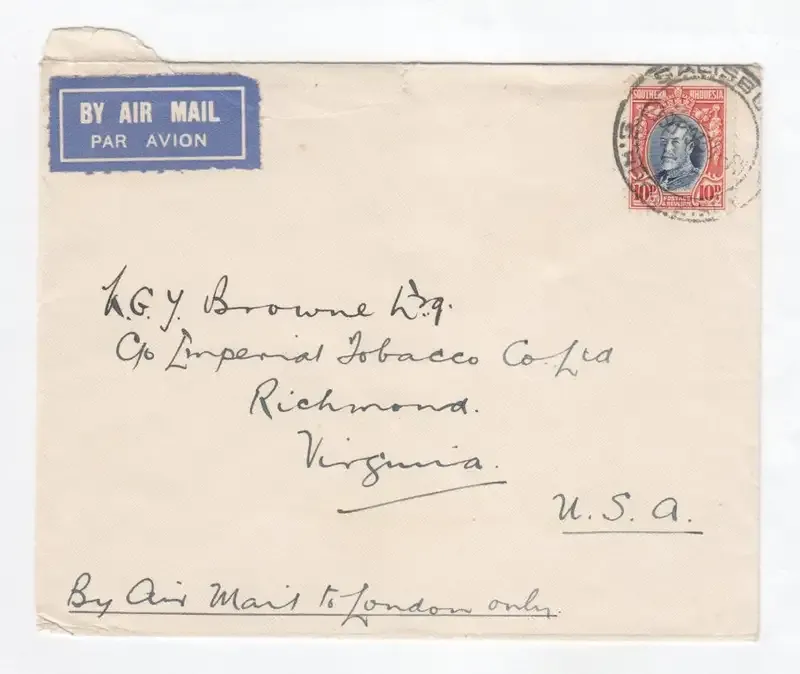 BY AIR MAIL
PAR AVION
SALISBU
SOUTHERN RHODESIA
10D POSTAGE & REVENUE 10D
G. Y. Browne Esq.
C/o Imperial Tobacco Co. Ltd
Richmond.
Virginia.
U. S. A.
By Air Mail to London only.